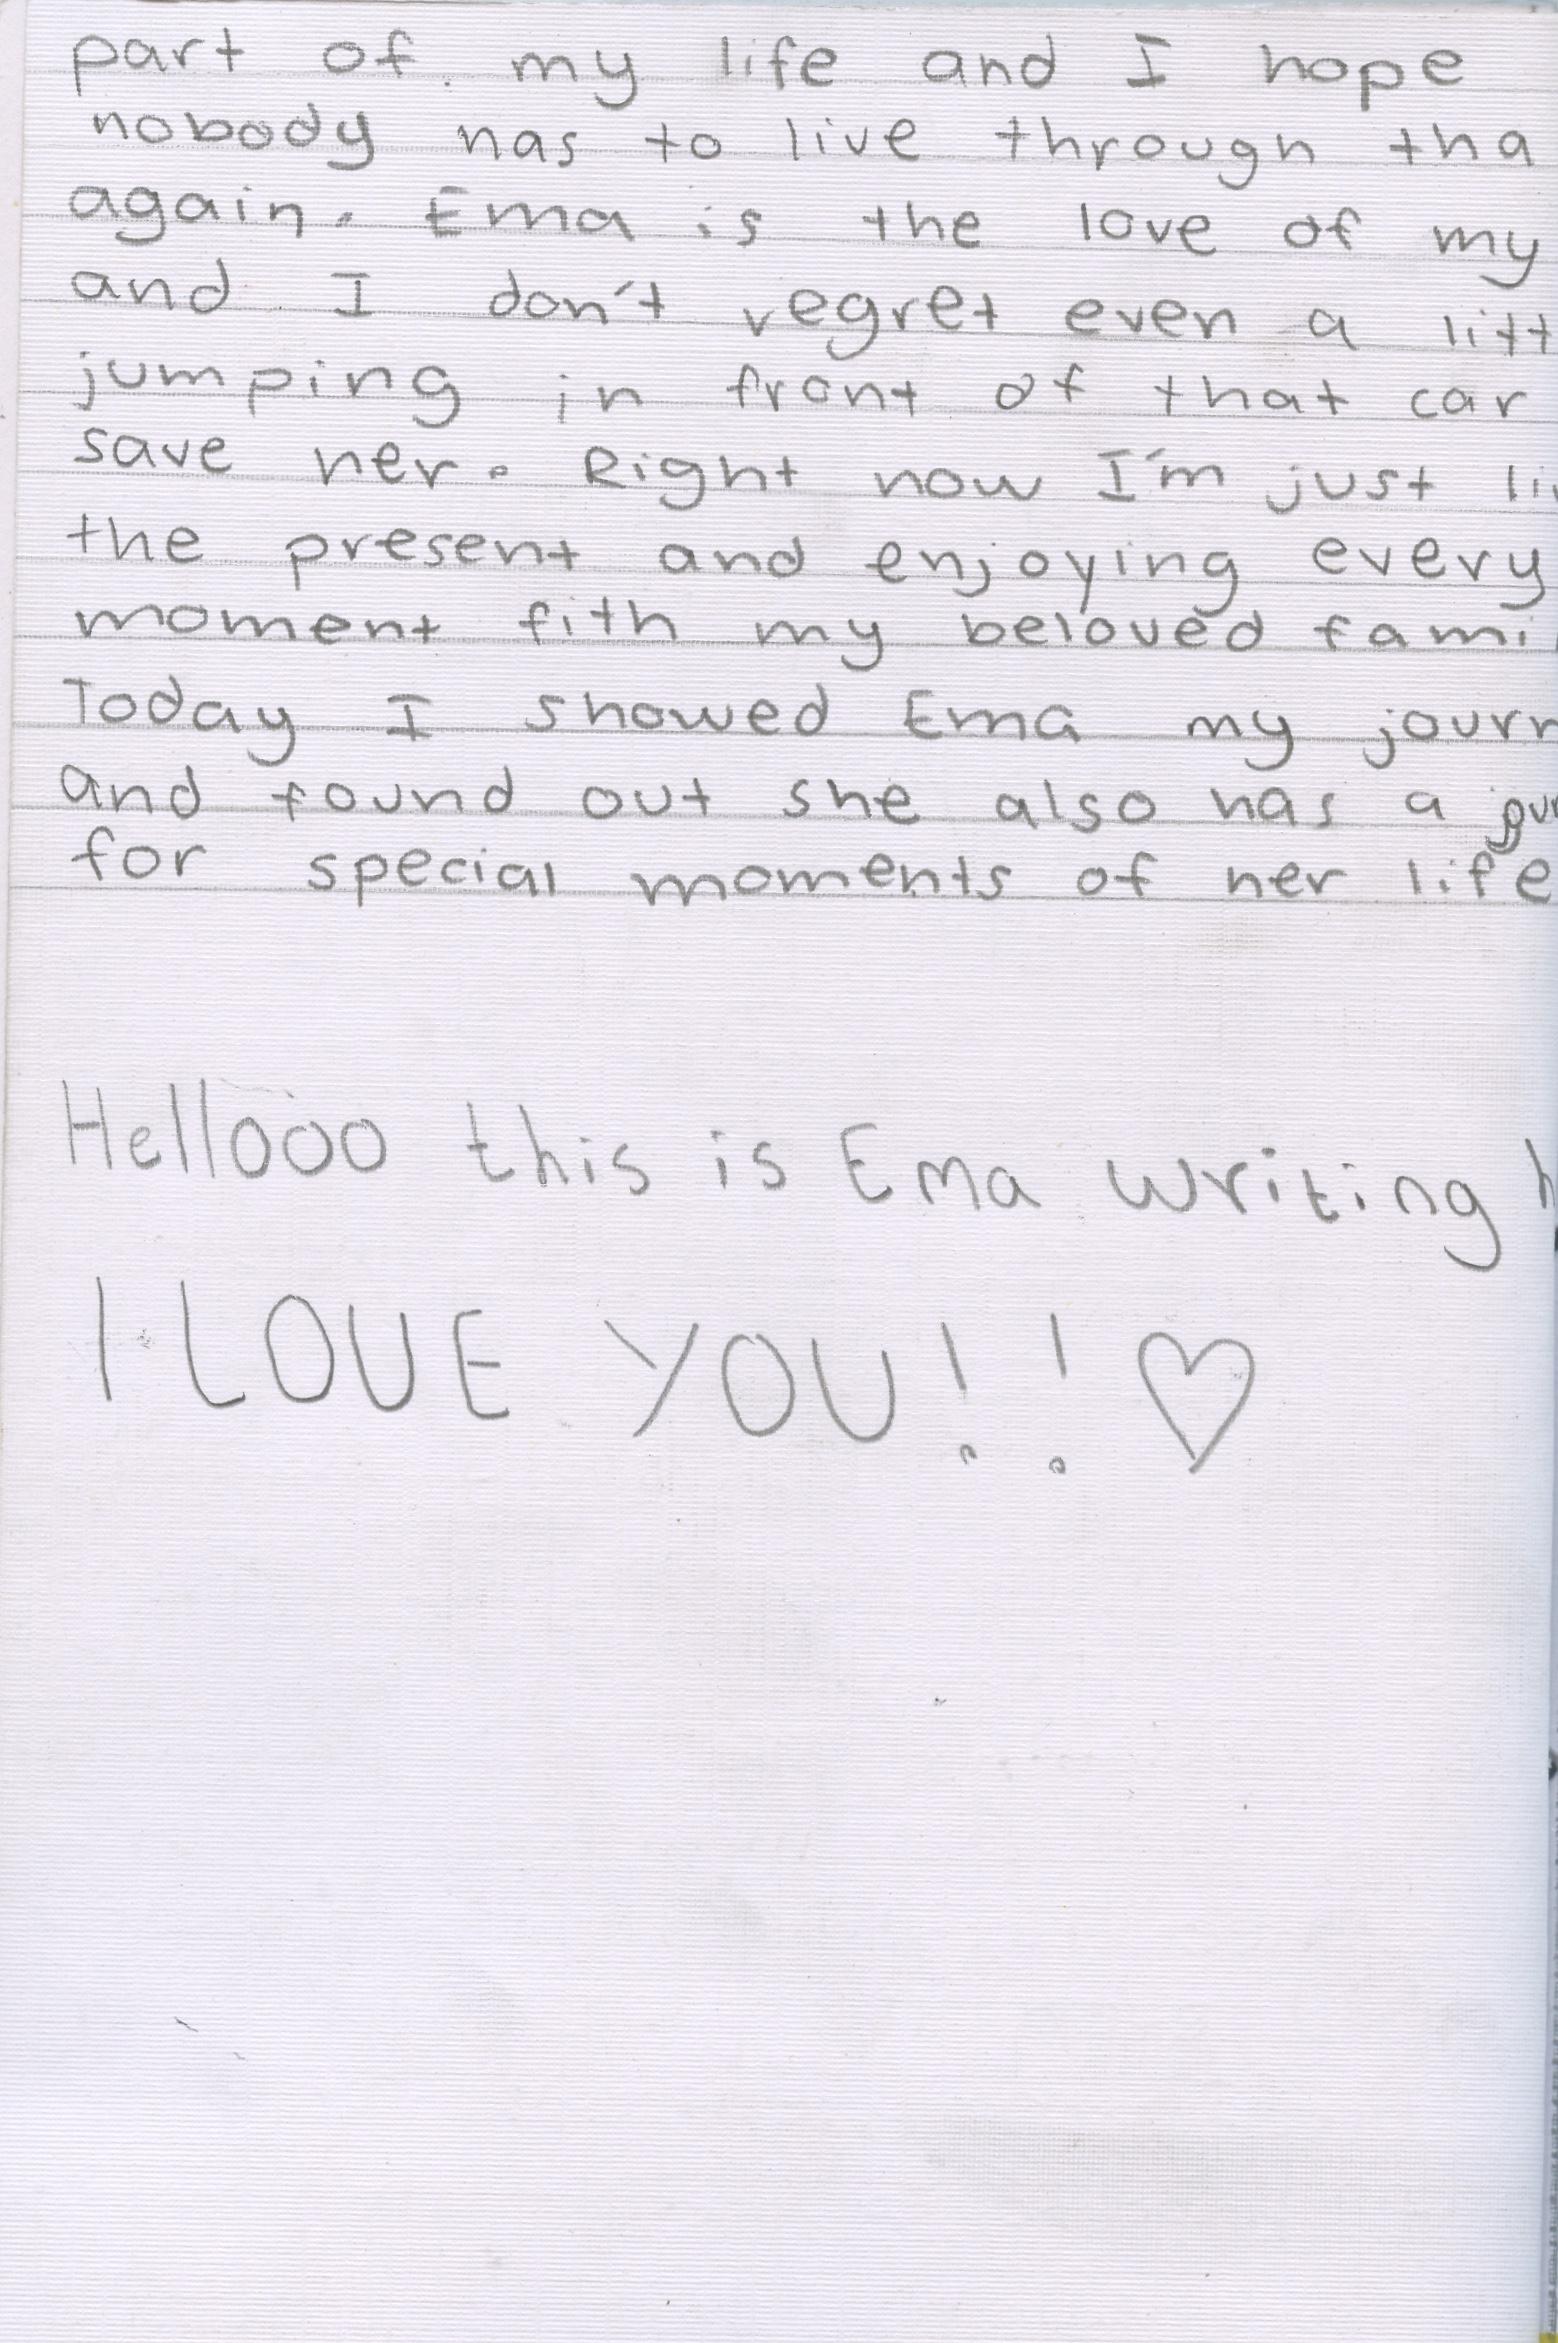 part of my life and I hope
nobody has to live through tha
again. Ema is the love of my
and I don't regret even a litt
jumping in front of that car
save her. Right now I'm just li
the present and enjoying every
moment fith my beloved fami
Today I showed Ema my journ
and found out she also has a
for special moments of her life
Hellooo this is Ema writing h
I LOVE YOU!! ♡